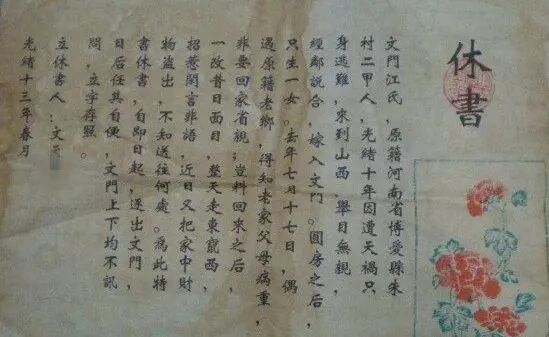 休書
文門江氏，原籍河南省博愛縣朱
村二甲人，光緒十年因遭天禍只
身逃難，來到山西，舉目無親，
經鄰說合，嫁入文門。圓房之后，
只生一女。去年七月十七日，偶
遇原籍老鄉，得知老家父母病重，
非要回家省親；豈料回來之后，
一改昔日面目，整天走東竄西，
招惹閑言非語，近日又把家中財
物盜出，不知送往何處。為此特
書休書，自即日起，逐出文門，
日后任其自便，文門上下均不訊
問，立字存照。
立休書人：文
光緒十三年春月